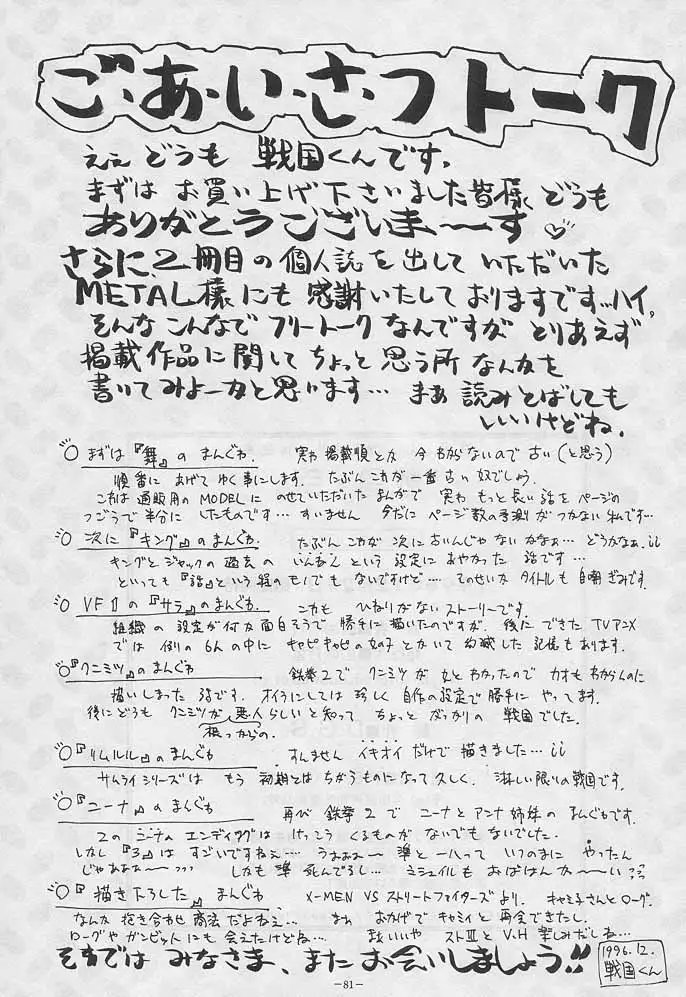 ご・あ・い・さ・つトーク
ええ どうも 戦国くんです。
まずは お買い上げ下さいました皆様 どうも
ありがとうございま〜〜す♡
さらに、2冊目の個人誌を出していただいた
METAL様にも 感謝いたしておりますです…ハイ。
そんなこんなで フリートークなんですが とりあえず
掲載作品に関して ちょっと思う所なんかを
書いてみよーかと思います… まあ 読みとばしても
いいけどね。
○ まずは『舞』のまんぐわ 実わ 掲載順とか 今 わからないので 古い(と思う)
順番に あげて ゆく事にします。 たぶん これが 一番 古い 奴でしょう。
これは 通販用の MODELに のせていただいた まんがで 実わ もっと長い話を ページの
つごうで 半分に したものです… すいません 今だに ページ数の予測が つかない 私です…
○ 次に『キング』のまんぐわ. たぶん これが 次に 古いんじゃないかなぁ… どうかなぁ.
キングと ジャックの 過去の いんねん という 設定に あやかった 話です…
といっても『話』という程の モノでも ないですけど… そのせいか タイトルも 自嘲ぎみです.
○ VFⅡの『サラ』のまんぐわ. これも ひねりがない ストーリーです。
組織の 設定が 何か 面白そうで 勝手に 描いたのですが、 後に できた TVアニメ
では 例の 6人の中に キャピキャピの女の子とかいて 幻滅した 記憶もあります.
○『クニミツ』のまんぐわ 鉄拳2で クニミツが 女と わかったので カオも わからんのに
描いしまった 話です. オイラにしては 珍しく 自作の設定で 勝手に やってます.
後にどうも クニミツが 悪人らしいと 知って ちょっと がっかりの 戦国でした.
根っからの.
○『リムルル』のまんぐわ すんません イキオイだけで 描きました…
サムライシリーズは もう 初期とは ちがうものになって 久しく. 淋しい限りの 戦国です.
○『ニーナ』のまんぐわ 再び 鉄拳2で ニーナと アンナ姉妹の まんぐわです.
2の エンディングは けっこう くるものが ないでもないでした.
しかし『3』は すごいですねえ… うおぉぉ〜 準と 一八って いつのまに やったん
じゃああぁ〜 しかも 準 死んでるし… ミシェイルも おばはんか〜〜い
○『描き下ろした』まんぐわ X-MEN VS ストリートファイターズより. キャミ子さんと ローグ.
なんか 抱き合わせ 商法だよねえ… まぁ おかげで キャミィと 再会できたし.
ローグや ガンビットにも 会えたけどね… まぁいいや ストⅢと V・H 楽しみだし…
それでは みなさま、また お会いしましょう!!
1996.12.
戦国くん
－81－